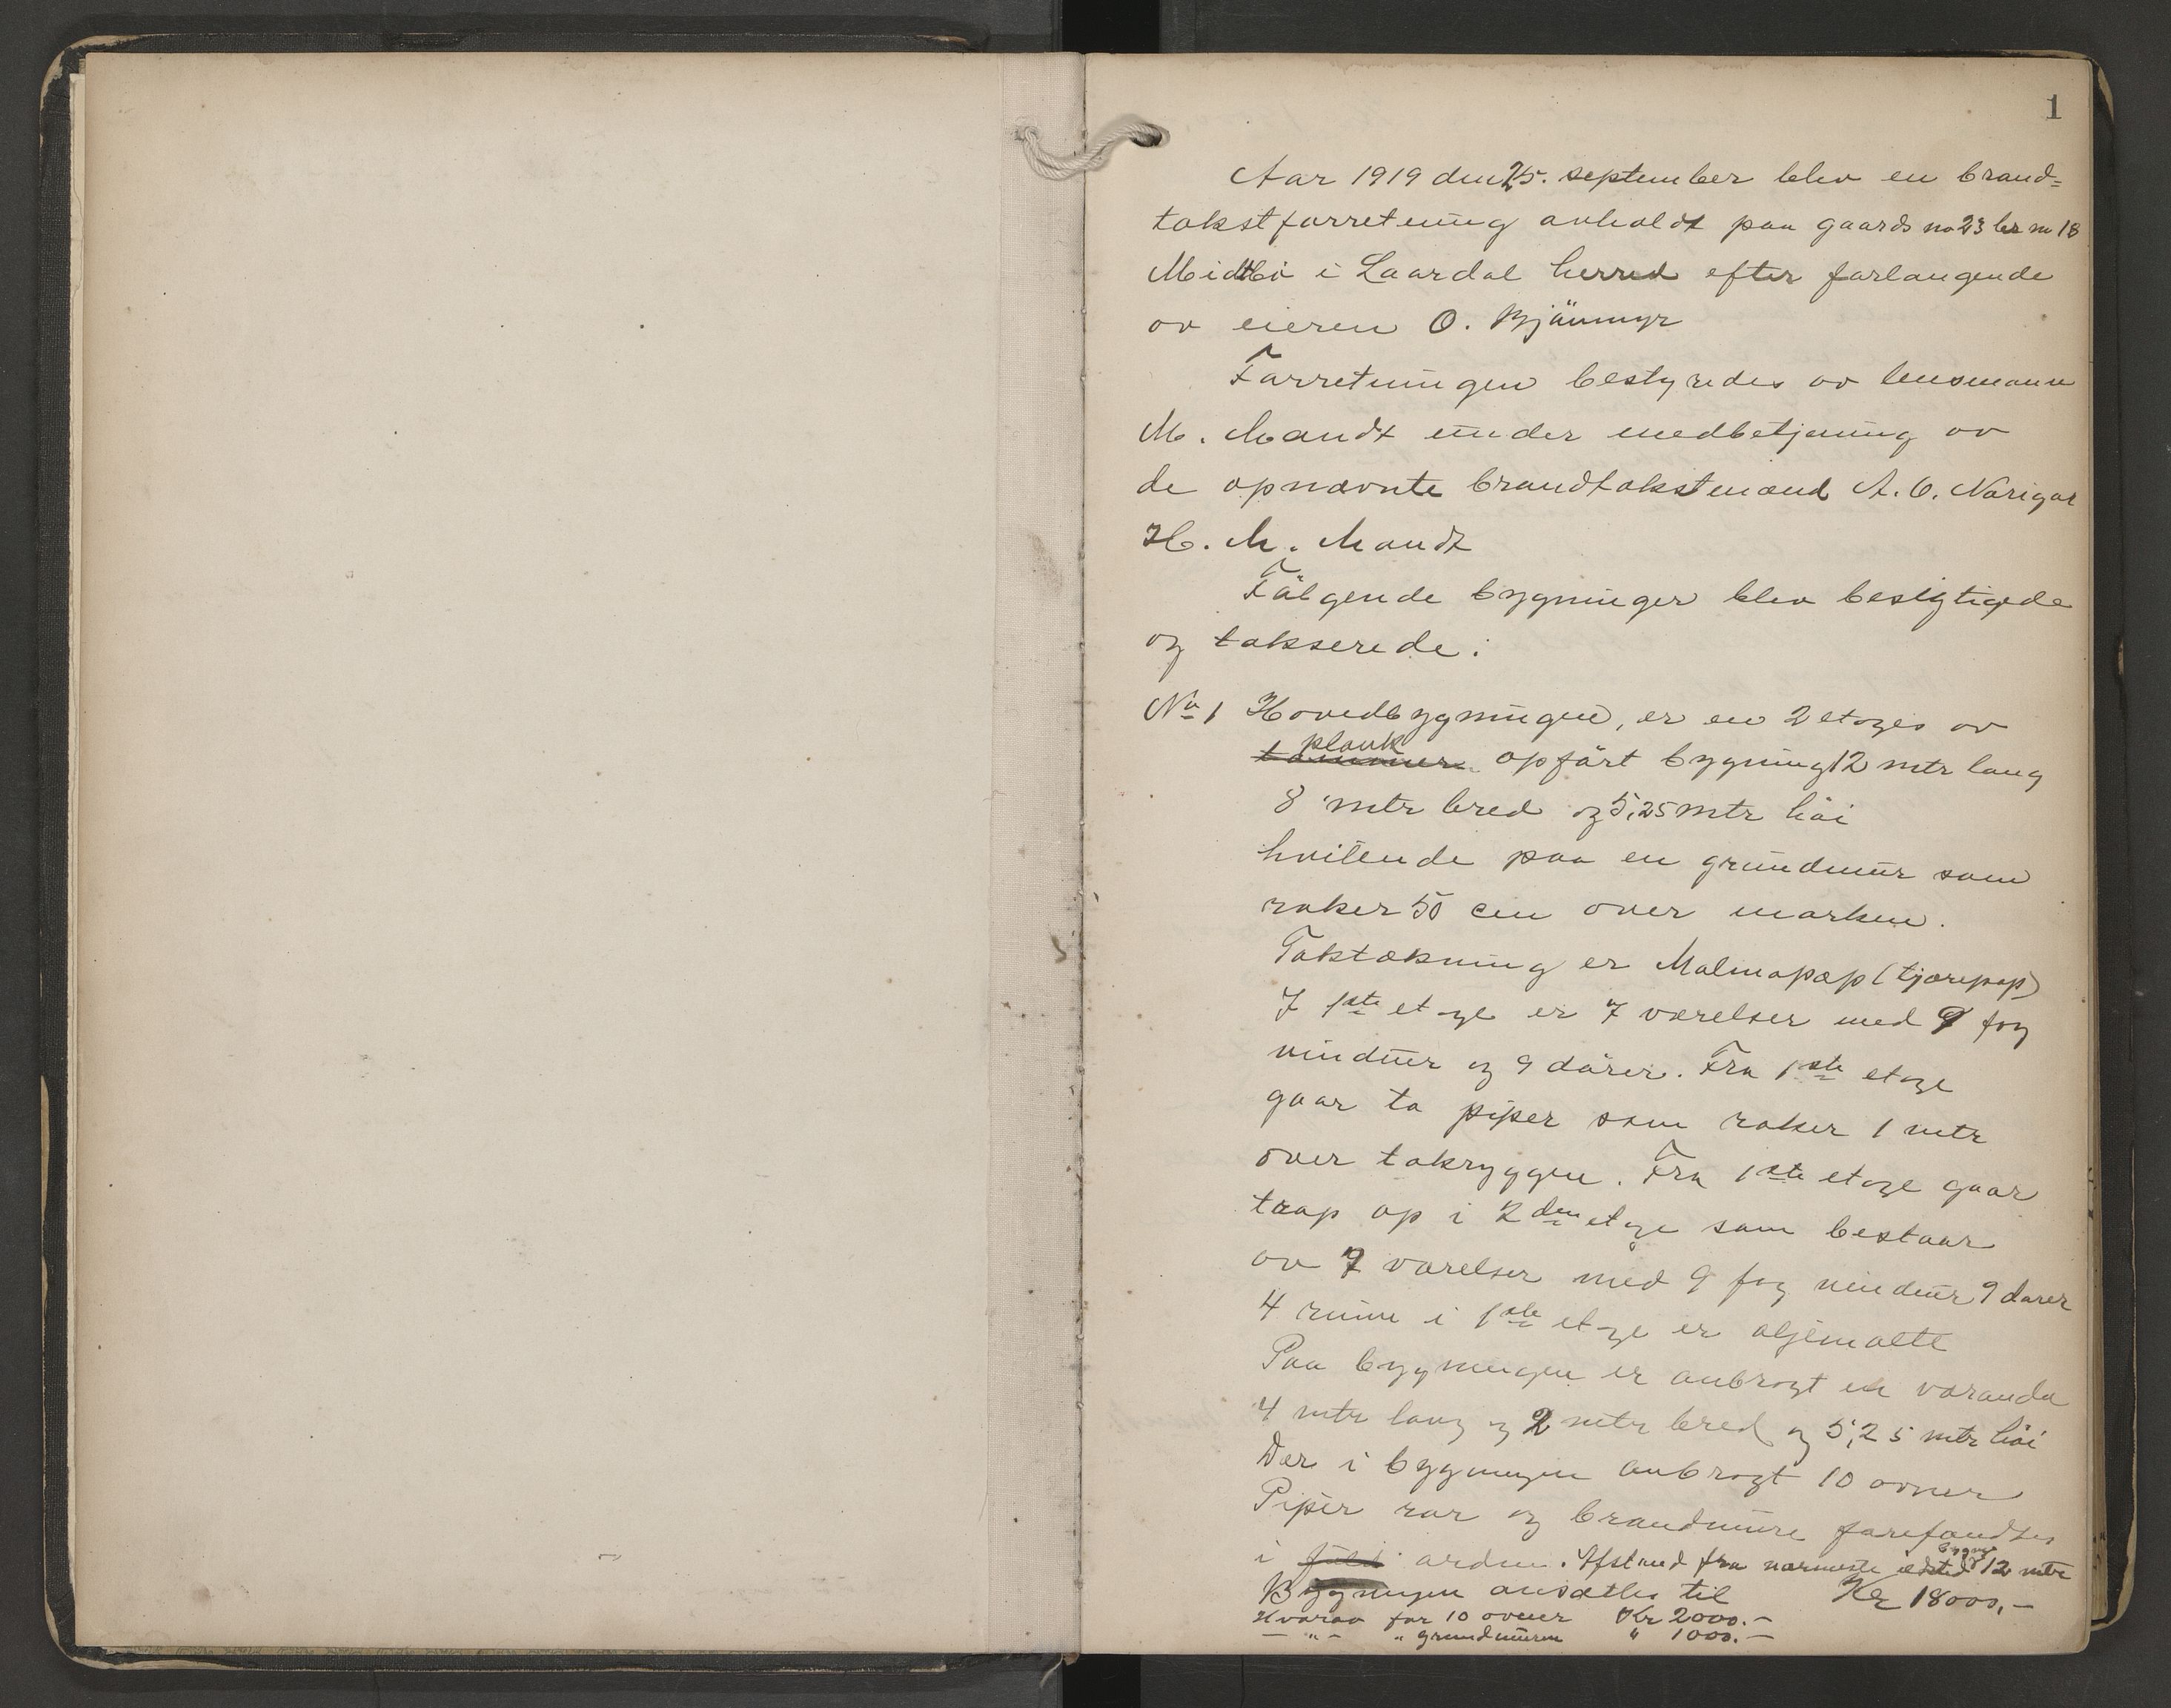 1
Aar 1919 den 25. september blev en brand=
takstforretning avholdt paa gaards no 23 br no 18
Midtbö i Laardal herred efter forlangende
av eieren O. Bjånmyr
Forretningen bestyredes av lensmann
M. Mandt under medbetjening av
de opnævnte brandtakstmænd A. O. Norigar
H. M. Mandt
Fölgende bygninger blev besigtigede
og takserede:
No 1 Hovedbygningen, er en 2 etages av
plank
tømmer opfört bygning 12 mtr lang
8 mtr bred og 5,25 mtr höi
hvilende paa en grundmur som
raker 50 cm over marken.
Taktækning er Malmøpap (tjærepap)
I 1ste etage er 7 værelser med 9 fag
vinduer og 9 dörer. Fra 1ste etage
gaar to piper som raker 1 mtr
over takryggen. Fra 1ste etage gaar
trap op i 2den etage som bestaar
av 7 værelser med 9 fag vinduer 9 dører
4 rum i 1ste etage er oljemalte
Paa bygningen er anbragt en veranda
4 mtr lang og 2 mtr bred og 5,25 mtr höi
Der i bygningen anbragt 10 ovner
Piper rør og brandmure forefandtes
i fuld orden. Afstand fra nærmeste ildsted 12 mtr
bygn
Bygningen ansættes til Kr 18000,-
Hvorav for 10 ovner Kr 2000.-
— " — " grundmuren " 1000.-